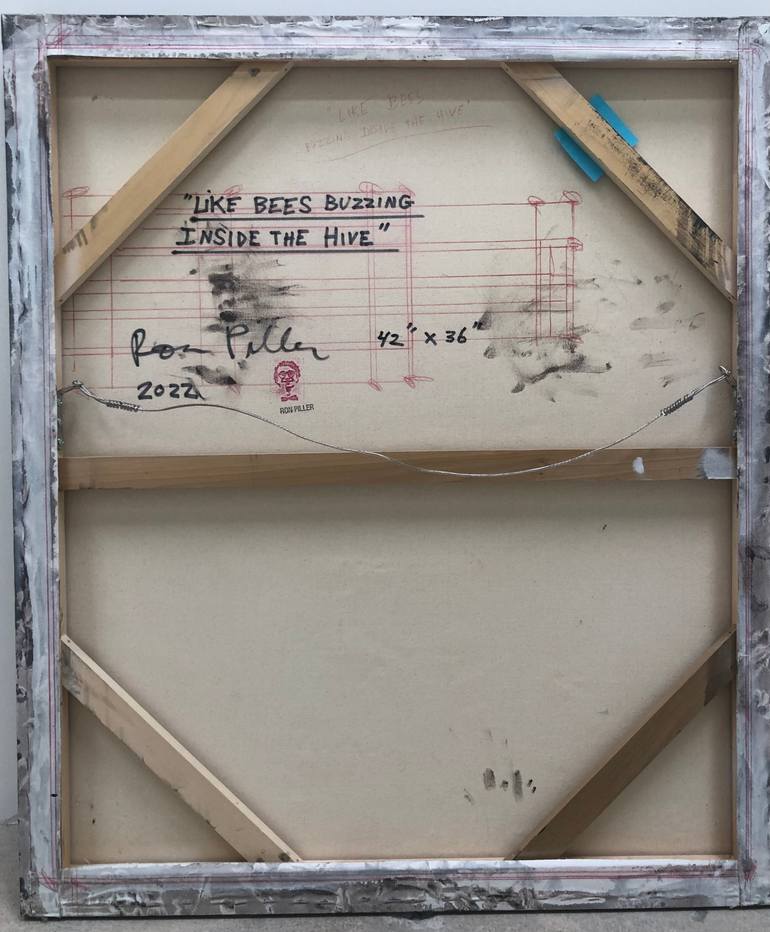 "LIKE BEES
BUZZING INSIDE THE HIVE"
"LIKE BEES BUZZING
INSIDE THE HIVE"
Ron Piller 42" x 36"
2022
RON PILLER